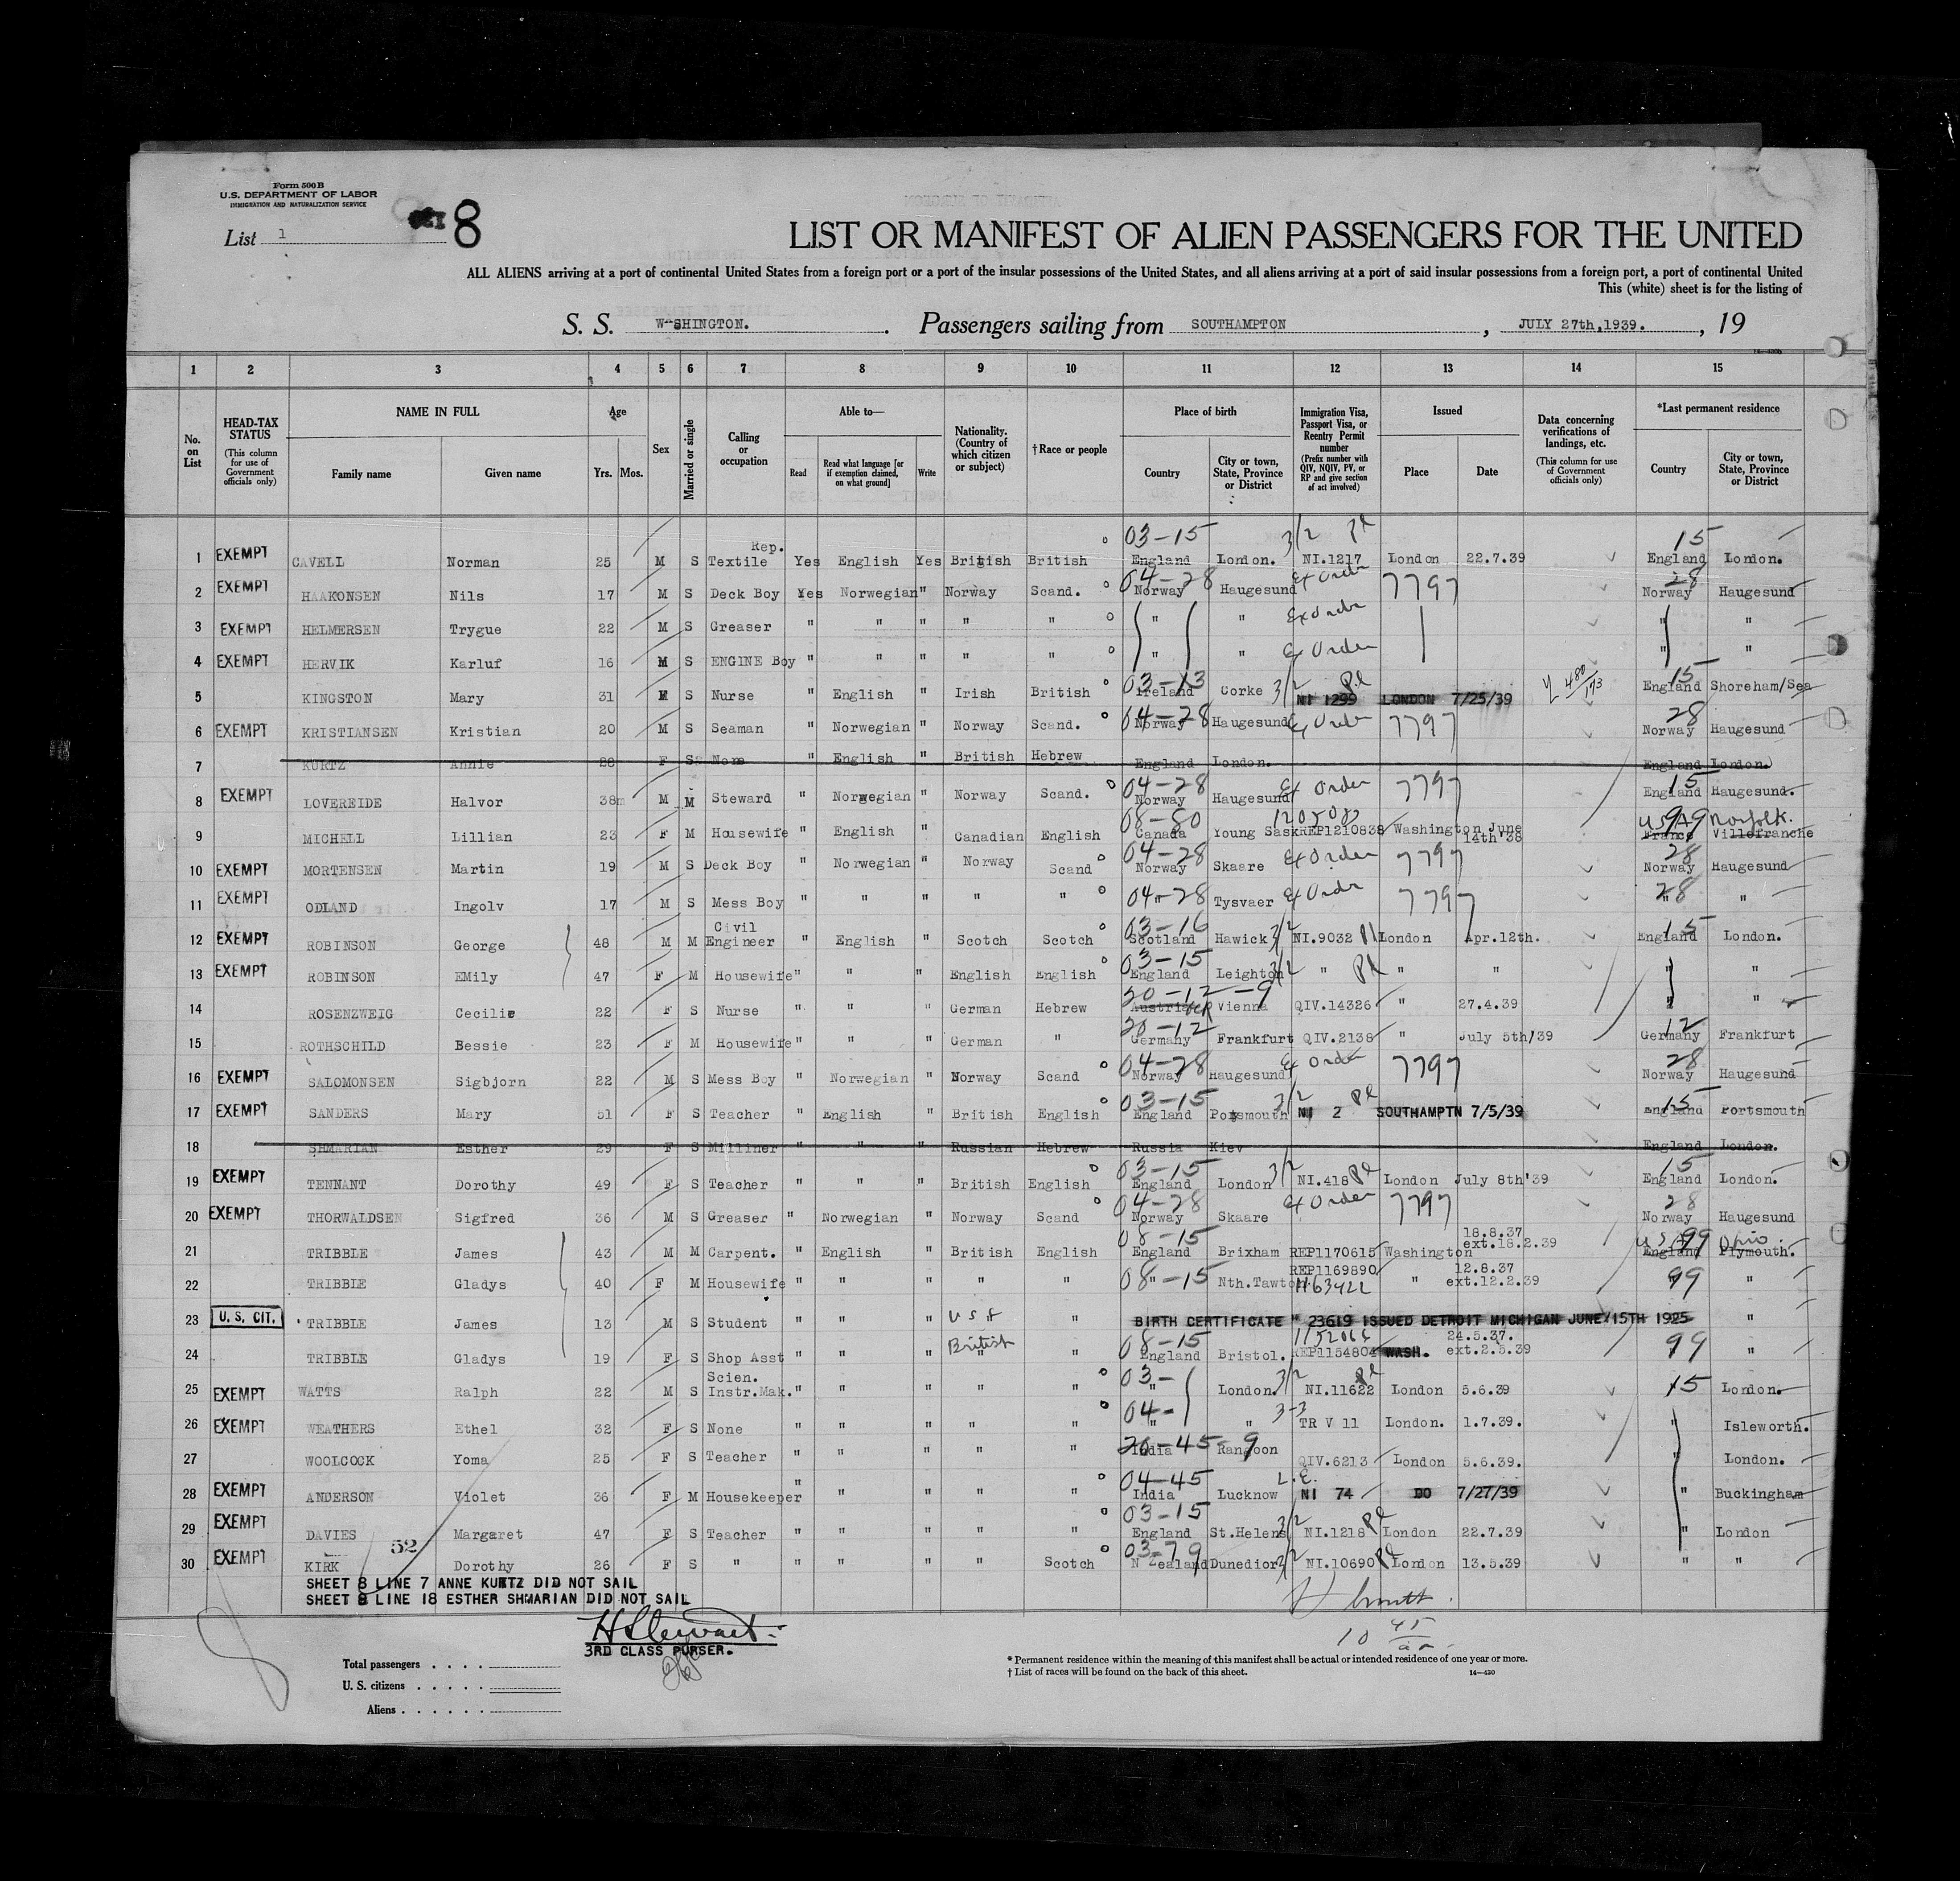 Form 500B
U.S. DEPARTMENT OF LABOR
IMMIGRATION AND NATURALIZATION SERVICE
List 1 8
LIST OR MANIFEST OF ALIEN PASSENGERS FOR THE UNITED
ALL ALIENS arriving at a port of continental United States from a foreign port or a port of the insular possessions of the United States, and all aliens arriving at a port of said insular possessions from a foreign port, a port of continental United
This (white) sheet is for the listing of
S. S. WASHINGTON. Passengers sailing from SOUTHAMPTON, JULY 27th, 1939., 19
1 2 3 4 5 6 7 8 9 10 11 12 13 14 15
No. on List HEAD-TAX STATUS (This column for use of Government officials only) NAME IN FULL Family name Given name Age Yrs. Mos. Sex Married or single Calling or occupation Able to— Read Read what language [or if exemption claimed, on what ground] Write Nationality. (Country of which citizen or subject) †Race or people Place of birth Country City or town, State, Province or District Immigration Visa, Passport Visa, or Reentry Permit number (Prefix number with QIV, NQIV, PV, or RP and give section of act involved) Issued Place Date Data concerning verifications of landings, etc. (This column for use of Government officials only) *Last permanent residence Country City or town, State, Province or District
1 EXEMPT CAVELL Norman 25 M S Textile Rep. Yes English Yes British British 03-15 England London. 3/2 NI.1217 London 22.7.39 15 England London.
2 EXEMPT HAAKONSEN Nils 17 M S Deck Boy Yes Norwegian " Norway Scand. 04-28 Norway Haugesund Ex Order 7797 28 Norway Haugesund
3 EXEMPT HELMERSEN Trygue 22 M S Greaser " " " " " " " Ex Order " "
4 EXEMPT HERVIK Karluf 16 M S ENGINE Boy " " " " " " " Ex Order " "
5 KINGSTON Mary 31 F S Nurse " English " Irish British 03-13 Ireland Corke 3/2 NI 1299 LONDON 7/25/39 480/173 15 England Shoreham/Sea
6 EXEMPT KRISTIANSEN Kristian 20 M S Seaman " Norwegian " Norway Scand. 04-28 Norway Haugesund Ex Order 7797 28 Norway Haugesund
7 KURTZ Annie 28 F S None " English " British Hebrew England London. England London.
8 EXEMPT LOVEREIDE Halvor 38m M M Steward " Norwegian " Norway Scand. 04-28 Norway Haugesund Ex Order 7797 15 England Haugesund.
9 MICHELL Lillian 23 F M Housewife " English " Canadian English 08-80 Canada Young Sask 1205082 REP1210838 Washington June 14th'38 USA 99 Norfolk. France Villefranche
10 EXEMPT MORTENSEN Martin 19 M S Deck Boy " Norwegian " Norway Scand 04-28 Norway Skaare Ex Order 7797 28 Norway Haugesund
11 EXEMPT ODLAND Ingolv 17 M S Mess Boy " " " " " 04-28 " Tysvaer Ex Order 7797 28 " "
12 EXEMPT ROBINSON George 48 M M Civil Engineer " English " Scotch Scotch 03-16 Scotland Hawick 3/2 NI.9032 London Apr.12th. 15 England London.
13 EXEMPT ROBINSON EMily 47 F M Housewife " " " English English 03-15 England Leighton 3/2 " " " " "
14 ROSENZWEIG Cecilie 22 F S Nurse " " " German Hebrew 20-12-9 Austria Vienna QIV.14326 " 27.4.39 " "
15 ROTHSCHILD Bessie 23 F M Housewife " " " German " 20-12 Germany Frankfurt QIV.2138 " July 5th/39 12 Germany Frankfurt
16 EXEMPT SALOMONSEN Sigbjorn 22 M S Mess Boy " Norwegian " Norway Scand 04-28 Norway Haugesund Ex Order 7797 28 Norway Haugesund
17 EXEMPT SANDERS Mary 51 F S Teacher " English " British English 03-15 England Portsmouth 3/2 NI 2 SOUTHAMPTN 7/5/39 15 England Portsmouth
18 SHMARIAN Esther 29 F S Milliner " " " Russian Hebrew Russia Kiev England London.
19 EXEMPT TENNANT Dorothy 49 F S Teacher " " " British English 03-15 England London 3/2 NI.418 London July 8th'39 15 England London.
20 EXEMPT THORWALDSEN Sigfred 36 M S Greaser " Norwegian " Norway Scand 04-28 Norway Skaare Ex Order 7797 28 Norway Haugesund
21 TRIBBLE James 43 M M Carpent. " English " British English 08-15 England Brixham REP1170615 Washington 18.8.37 ext.18.2.39 USA 99 Ohio. England Plymouth.
22 TRIBBLE Gladys 40 F M Housewife " " " " " 08-15 " Nth.Tawton REP1169890 1163422 " 12.8.37 ext.12.2.39 99 "
23 U. S. CIT. TRIBBLE James 13 M S Student " " " USA " BIRTH CERTIFICATE " 23619 ISSUED DETROIT MICHIGAN JUNE/15TH 1925 "
24 TRIBBLE Gladys 19 F S Shop Asst " " " British " " 08-15 England Bristol. REP1154804 WASH. 24.5.37. ext.2.5.39 99 "
25 EXEMPT WATTS Ralph 22 M S Scien. Instr.Mak. " " " " " 03- " London. 3/2 NI.11622 London 5.6.39 15 London.
26 EXEMPT WEATHERS Ethel 32 F S None " " " " " 04- " " 3-3 TR V 11 London. 1.7.39. " Isleworth.
27 WOOLCOCK Yoma 25 F S Teacher " " " " " 20-45-9 India Rangoon QIV.6213 London 5.6.39. " London.
28 EXEMPT ANDERSON Violet 36 F M Housekeeper " " " " " 04-45 India Lucknow NI 74 DO 7/27/39 " Buckingham
29 EXEMPT DAVIES Margaret 47 F S Teacher " " " " " 03-15 England St.Helens 3/2 NI.1218 London 22.7.39 " London
30 EXEMPT KIRK Dorothy 26 F S " " " " " Scotch 03-79 N Zealand Dunedior 3/2 NI.10690 London 13.5.39 " "
52
SHEET 8 LINE 7 ANNE KURTZ DID NOT SAIL
SHEET 8 LINE 18 ESTHER SHMARIAN DID NOT SAIL
H Stewart
3RD CLASS PURSER.
10 45
Total passengers
U. S. citizens
Aliens
* Permanent residence within the meaning of this manifest shall be actual or intended residence of one year or more.
† List of races will be found on the back of this sheet. 14—430